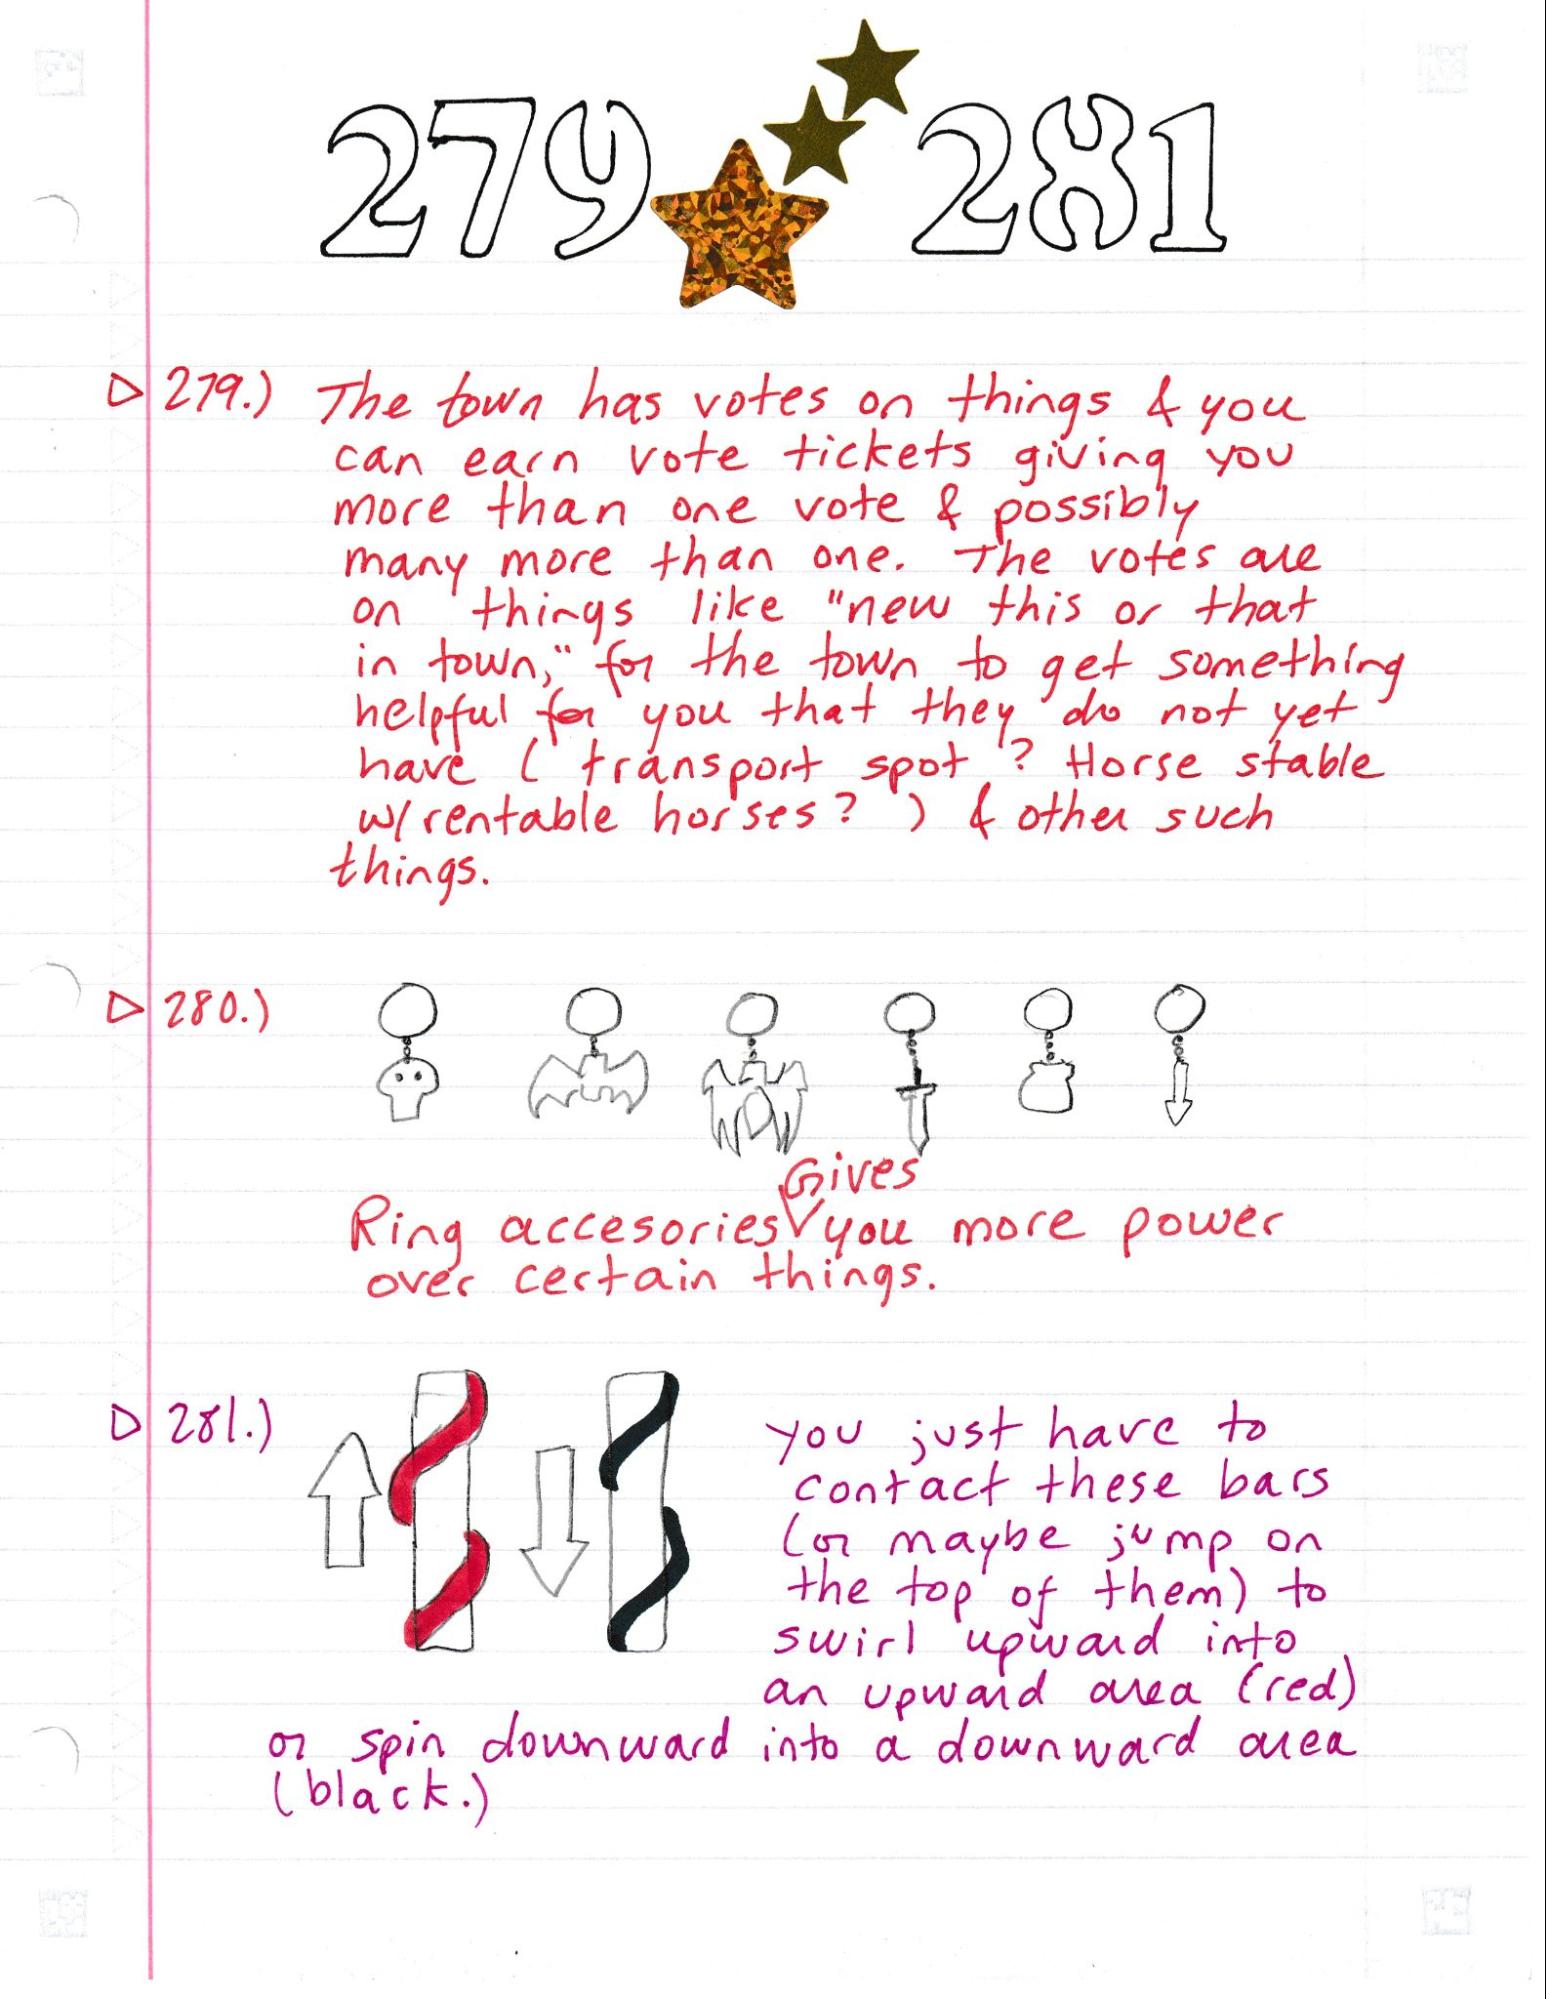 279 281
279.) The town has votes on things & you
can earn vote tickets giving you
more than one vote & possibly
many more than one. The votes are
on things like "new this or that
in town," for the town to get something
helpful for you that they do not yet
have ( transport spot ? Horse stable
w/ rentable horses? ) & other such
things.
280.)
Gives
Ring accesories you more power
over certain things.
281.) you just have to
contact these bars
(or maybe jump on
the top of them) to
swirl upward into
an upward area (red)
or spin downward into a downward area
(black.)